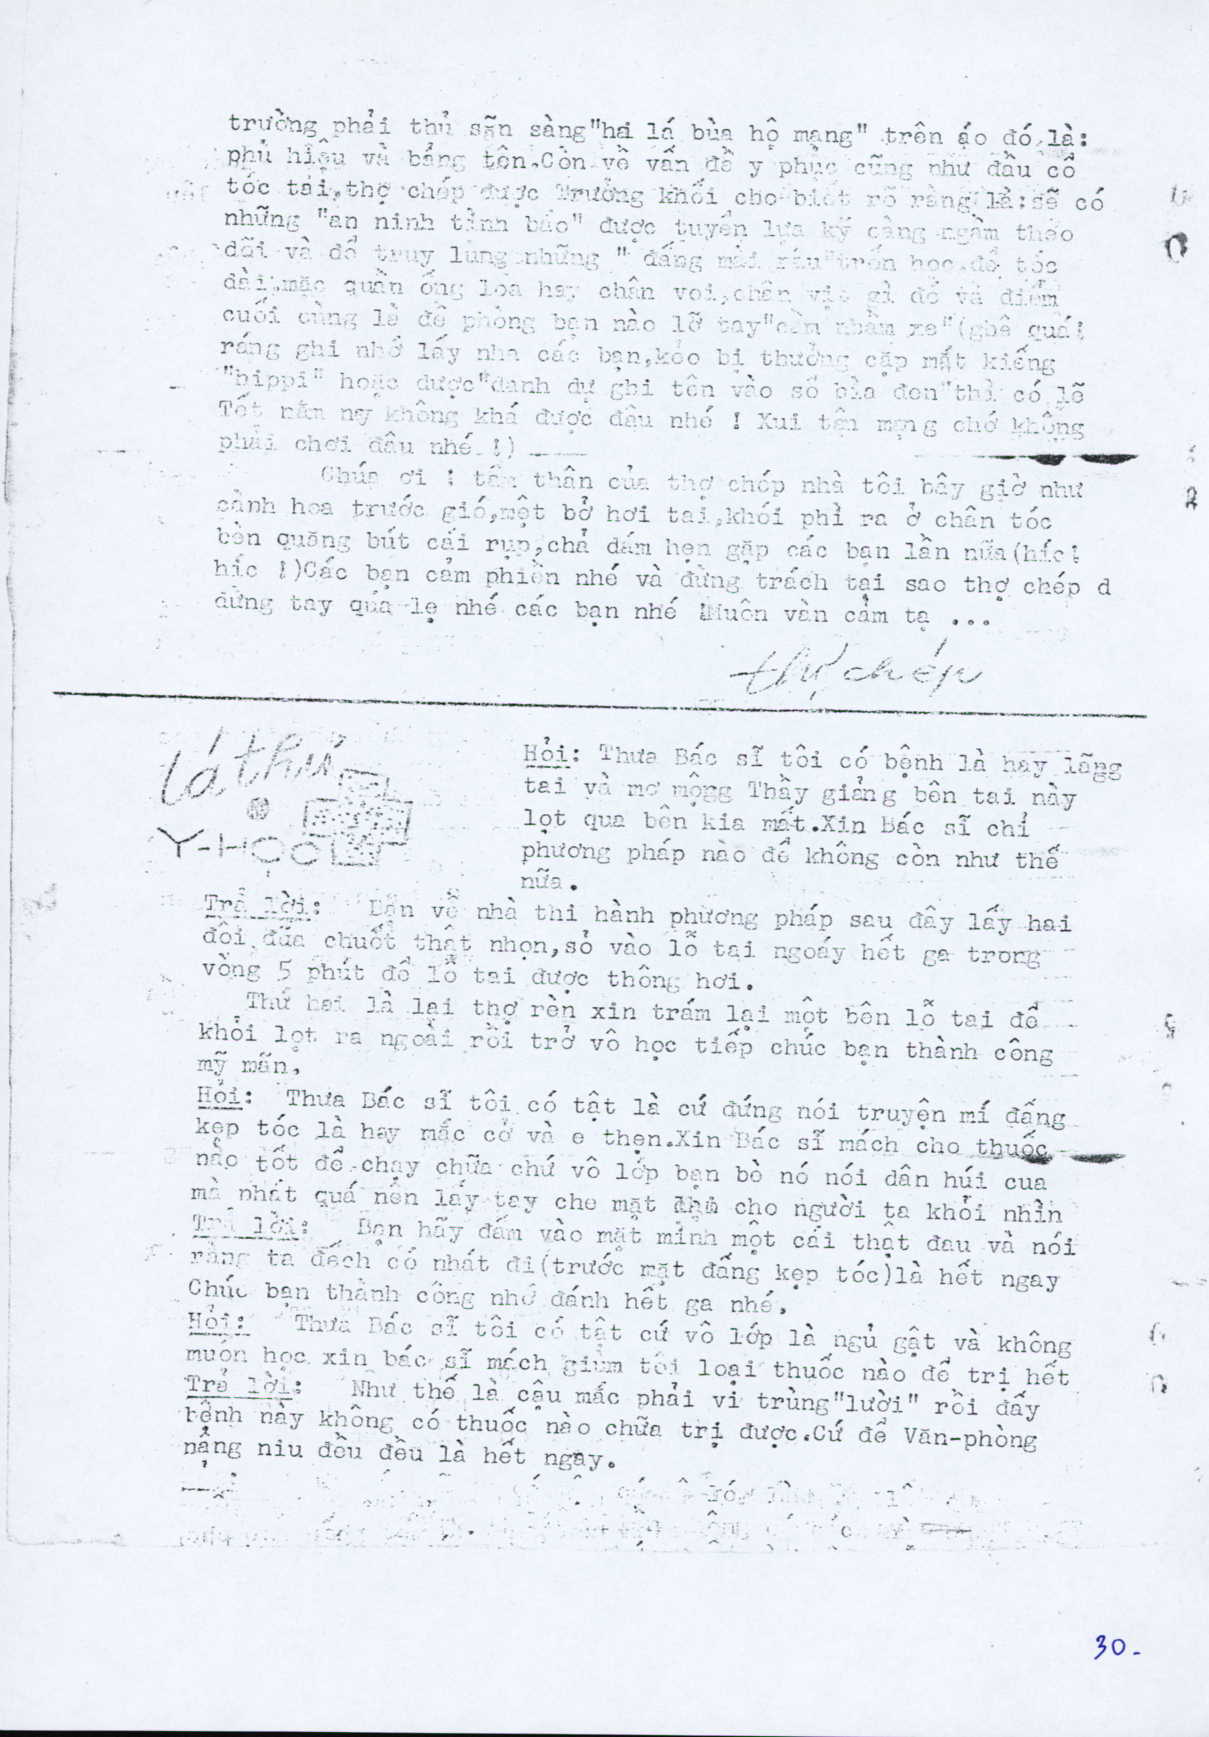 trường phải thủ sẵn sàng"hai lá bùa hộ mạng" trên áo đó là:
phù hiệu và bảng tên.Còn về vấn đề y phục cũng như đầu cổ
tóc tai,thợ chép được Trưởng khối cho biết rõ ràng là:sẽ có
những "an ninh tình báo" được tuyển lựa kỹ càng ngầm theo
dõi và để truy lùng những " đấng mài râu"trốn học,để tóc
dài,mặc quần ống loa hay chân voi,chân vịt gì đó và điểm
cuối cùng là đề phòng bạn nào lỡ tay"cầm nhầm xe"(ghê quá!
ráng ghi nhớ lấy nha các bạn,kẻo bị thưởng cặp mắt kiếng
"hippi" hoặc được"danh dự ghi tên vào sổ bìa đen"thì có lẽ
Tết năm nay không khá được đâu nhé ! Xui tận mạng chớ không
phải chơi đâu nhé !)
Chúa ơi ! tấm thân của thợ chép nhà tôi bây giờ như
cành hoa trước gió,mệt bở hơi tai,khói phì ra ở chân tóc
bèn quăng bút cái rụp,chả dám hẹn gặp các bạn lần nữa(híc!
híc !)Các bạn cảm phiền nhé và đừng trách tại sao thợ chép d
dừng tay quá lẹ nhé các bạn nhé !Muôn vàn cảm tạ ...
thợ chép
lá thư
Y-HỌC
Hỏi: Thưa Bác sĩ tôi có bệnh là hay lãng
tai và mơ mộng Thầy giảng bên tai này
lọt qua bên kia mất.Xin Bác sĩ chỉ
phương pháp nào để không còn như thế
nữa.
Trả lời: Bạn về nhà thi hành phương pháp sau đây lấy hai
đôi đũa chuốt thật nhọn,sỏ vào lỗ tai ngoáy hết ga trong
vòng 5 phút để lỗ tai được thông hơi.
Thứ hai là lại thợ rèn xin trám lại một bên lỗ tai để
khỏi lọt ra ngoài rồi trở vô học tiếp chúc bạn thành công
mỹ mãn,
Hỏi: Thưa Bác sĩ tôi có tật là cứ đứng nói truyện mí đấng
kẹp tóc là hay mắc cở và e thẹn.Xin Bác sĩ mách cho thuốc
nào tốt để chạy chữa chứ vô lớp bạn bò nó nói dân húi cua
mà nhát quá nên lấy tay che mặt cho người ta khỏi nhìn
Trả lời: Bạn hãy đấm vào mặt mình một cái thật đau và nói
rằng ta đếch có nhát đi(trước mặt đấng kẹp tóc)là hết ngay
Chúc bạn thành công nhớ đánh hết ga nhé.
Hỏi: Thưa Bác sĩ tôi có tật cứ vô lớp là ngủ gật và không
muốn học xin bác sĩ mách giùm tôi loại thuốc nào để trị hết
Trả lời: Như thế là cậu mắc phải vi trùng"lười" rồi đấy
bệnh này không có thuốc nào chữa trị được.Cứ để Văn-phòng
nâng niu đều đều là hết ngay.
30-